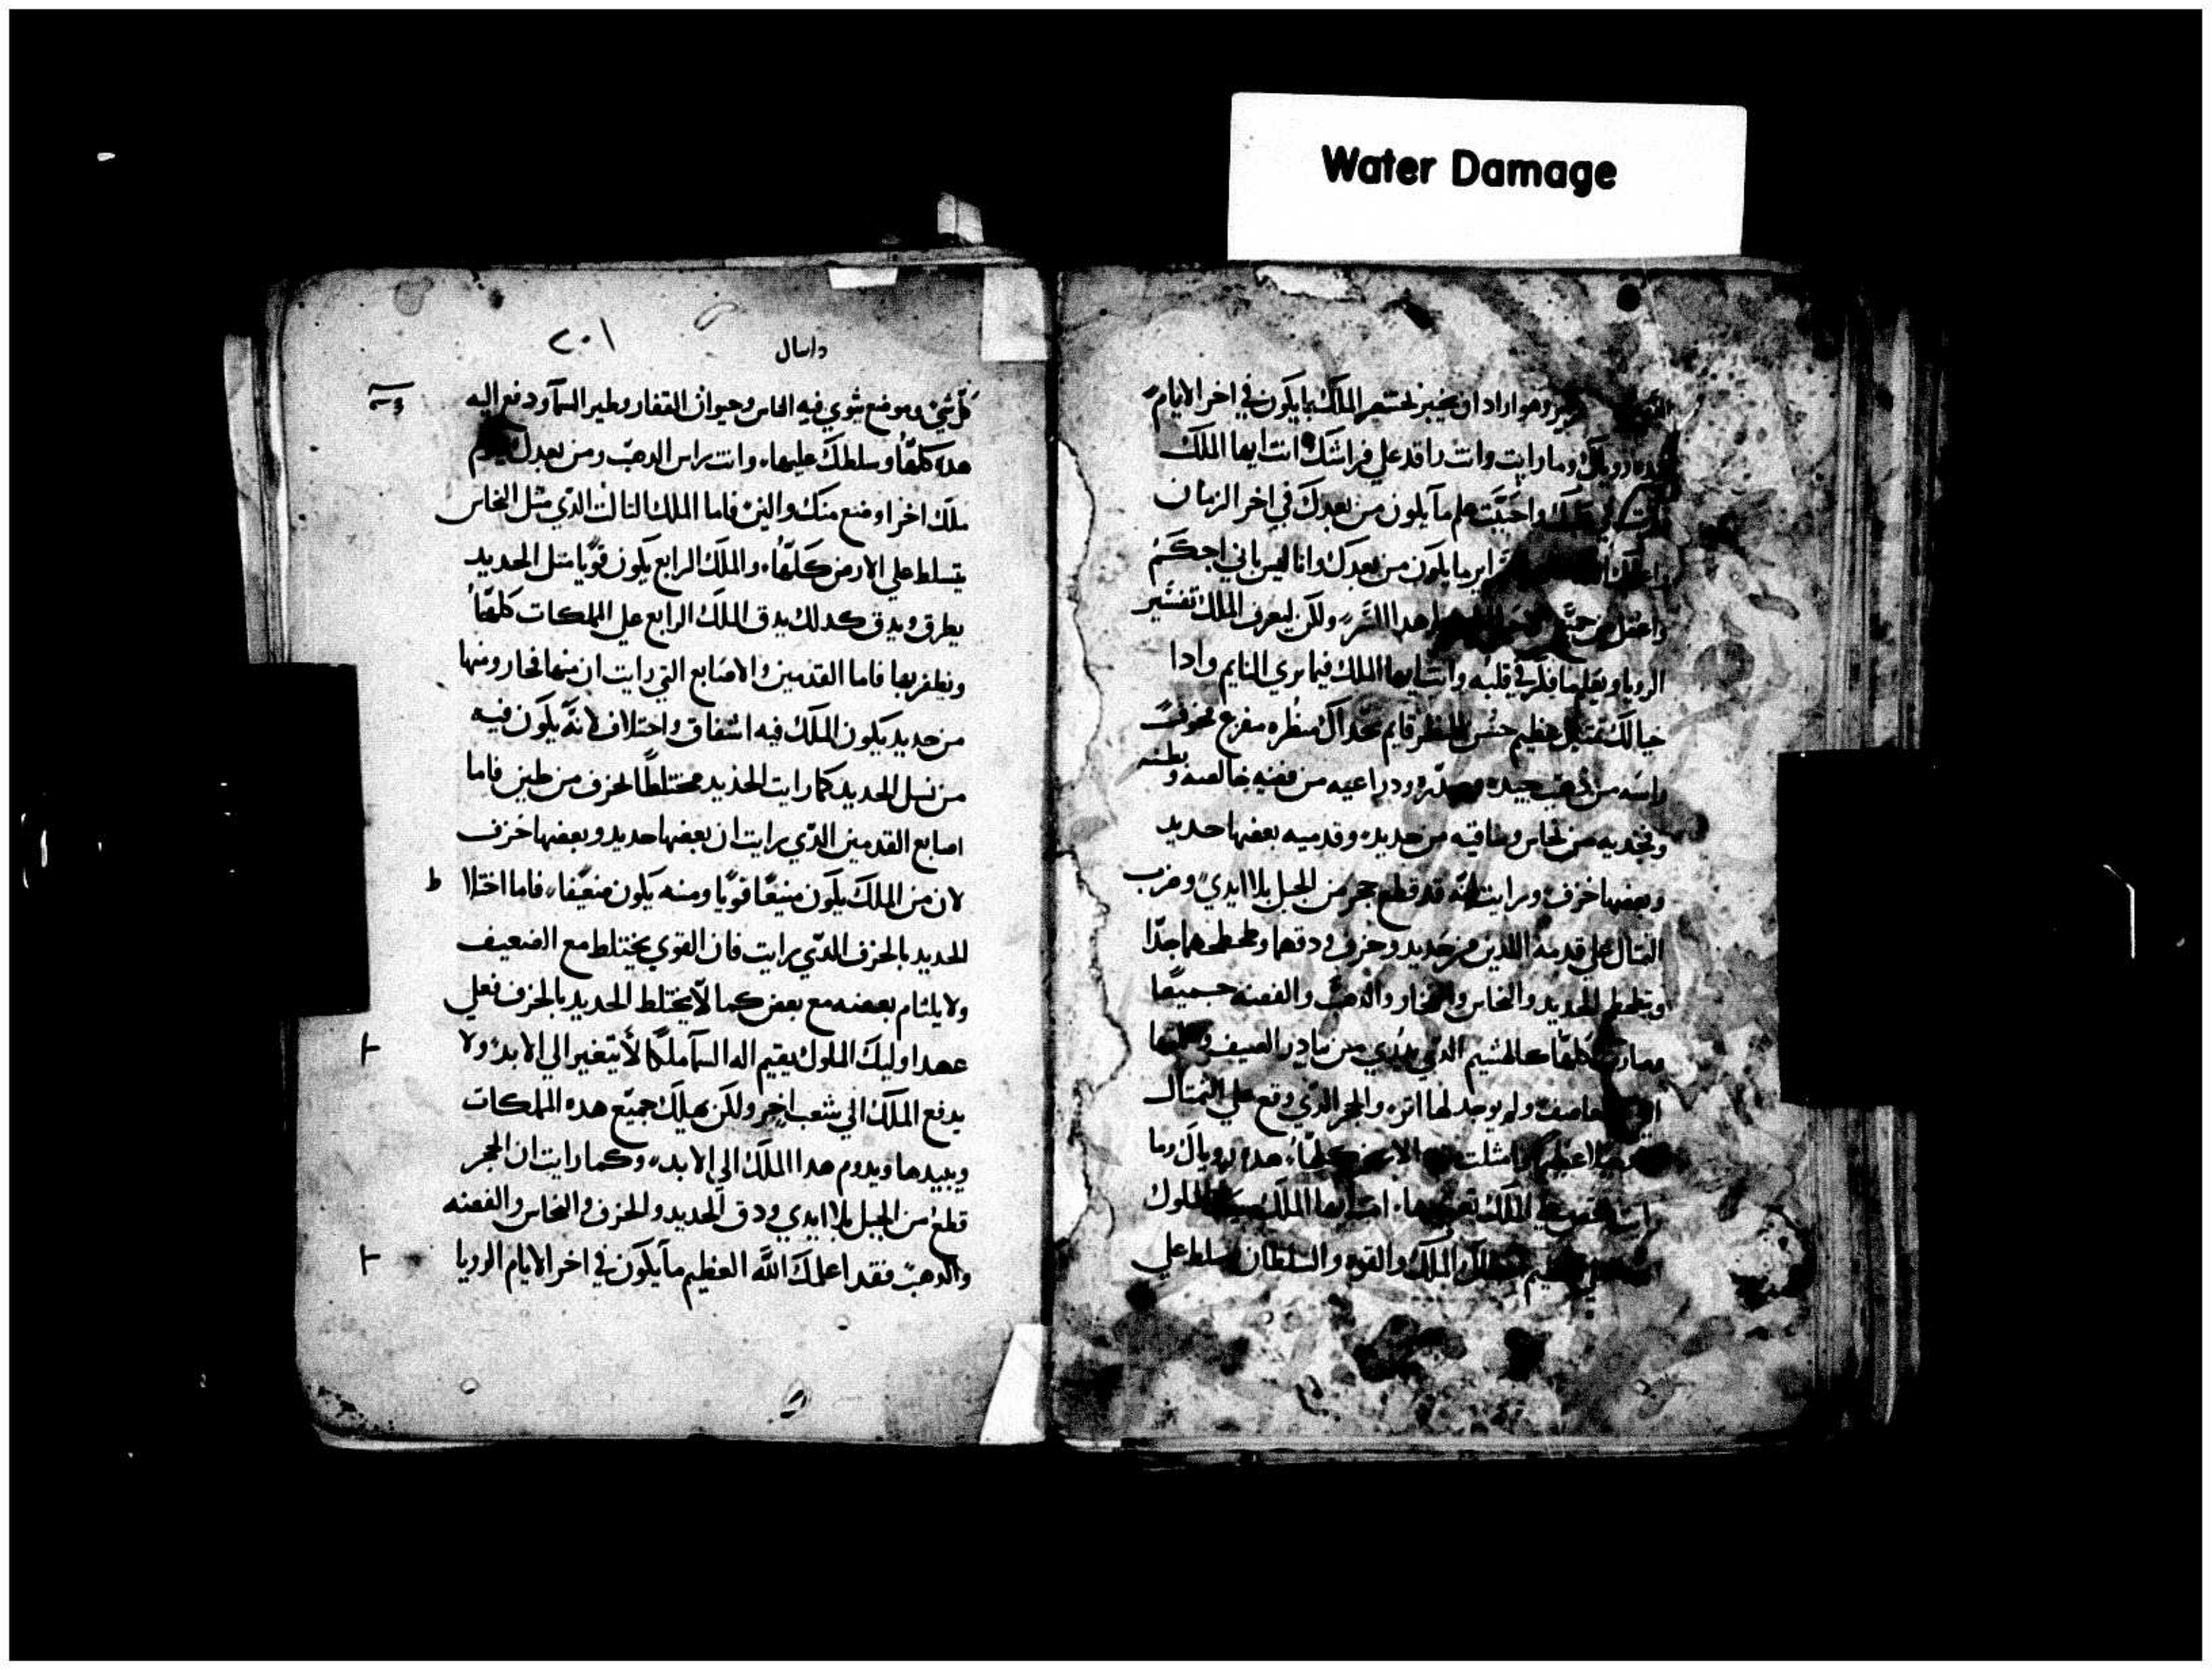 Water Damage
وهو اراد ان يخبر بختنصر الملك بما يكون في اخر الايام
وما رايت وانت راقد علي فراشك انت ايها الملك
واحببت علم ما يكون من بعدك في اخر الزمان
ما يكون من بعدك وانا ليس باني احكم
هدا السر ولكن ليعرف الملك تفسير
الرويا ويعلم ما فكر في قلبه وانت ايها الملك فيما يري النايم وادا
خيالك تمتال عظيم حسن المنظر قايم بحداك منظره مفزع مخوف
راسه من دهب جيد وصدره ودراعيه من فضه خالصه وبطنه
وفخديه من نحاس وساقيه من حديد وقدميه بعضها حديد
وبعضها خزف ورايت انه قد قطع حجر من الجبل بلا ايدي وضرب
التمتال علي قدميه اللدين من حديد وخزف ودقهما وطحطحهما جدا
وتطحطح الحديد والنحاس والفخار والدهب والفضه جميعا
وصارت كلها كالهشيم الدي يدري من بيادر الصيف
ولم يوجد لها اتر والحجر الدي وقع علي التمتال
الارض كلها هده روياك وما
ايها الملك الملوك
الملك والقوه والسلطان سلط علي
دانيال
٢٠١
كل شي وموضع يثوي فيه الناس وحيوان القفار وطير السما ودفع اليه
هده كلها وسلطك عليها وانت راس الدهب ومن بعدك يقوم
ملك اخر اوضع منك والين فاما الملك التالت الدي مثل النحاس
يتسلط علي الارض كلها والملك الرابع يكون قويا مثل الحديد
يطرق ويدق كدلك يدق الملك الرابع علي المملكات كلها
ويظفر بها فاما القدمين والاصابع التي رايت ان منها فخار ومنها
من حديد يكون الملك فيه اشفاق واختلاف لانه يكون فيه
من نسل الحديد كما رايت الحديد مختلطا لخزف من طين فاما
اصابع القدمين الدي رايت ان بعضها حديد وبعضها خزف
لان من الملك يكون منيعا قويا ومنه يكون ضعيفا فاما اختلا ط
الحديد بالخزف الدي رايت فان القوي يختلط مع الضعيف
ولا يلتام بعضه مع بعض كما لا يختلط الحديد بالخزف فعلي
عهد اوليك الملوك يقيم اله السما ملكا لا يتغير الي الابد ولا
يدفع الملك الي شعب اخر ولكن يهلك جميع هده المملكات
ويبيدها ويدوم هدا الملك الي الابد وكما رايت ان الحجر
قطع من الجبل بلا ايدي ودق الحديد والخزف والنحاس والفضه
والدهب فقد اعلمك الله العظيم ما يكون في اخر الايام الرويا